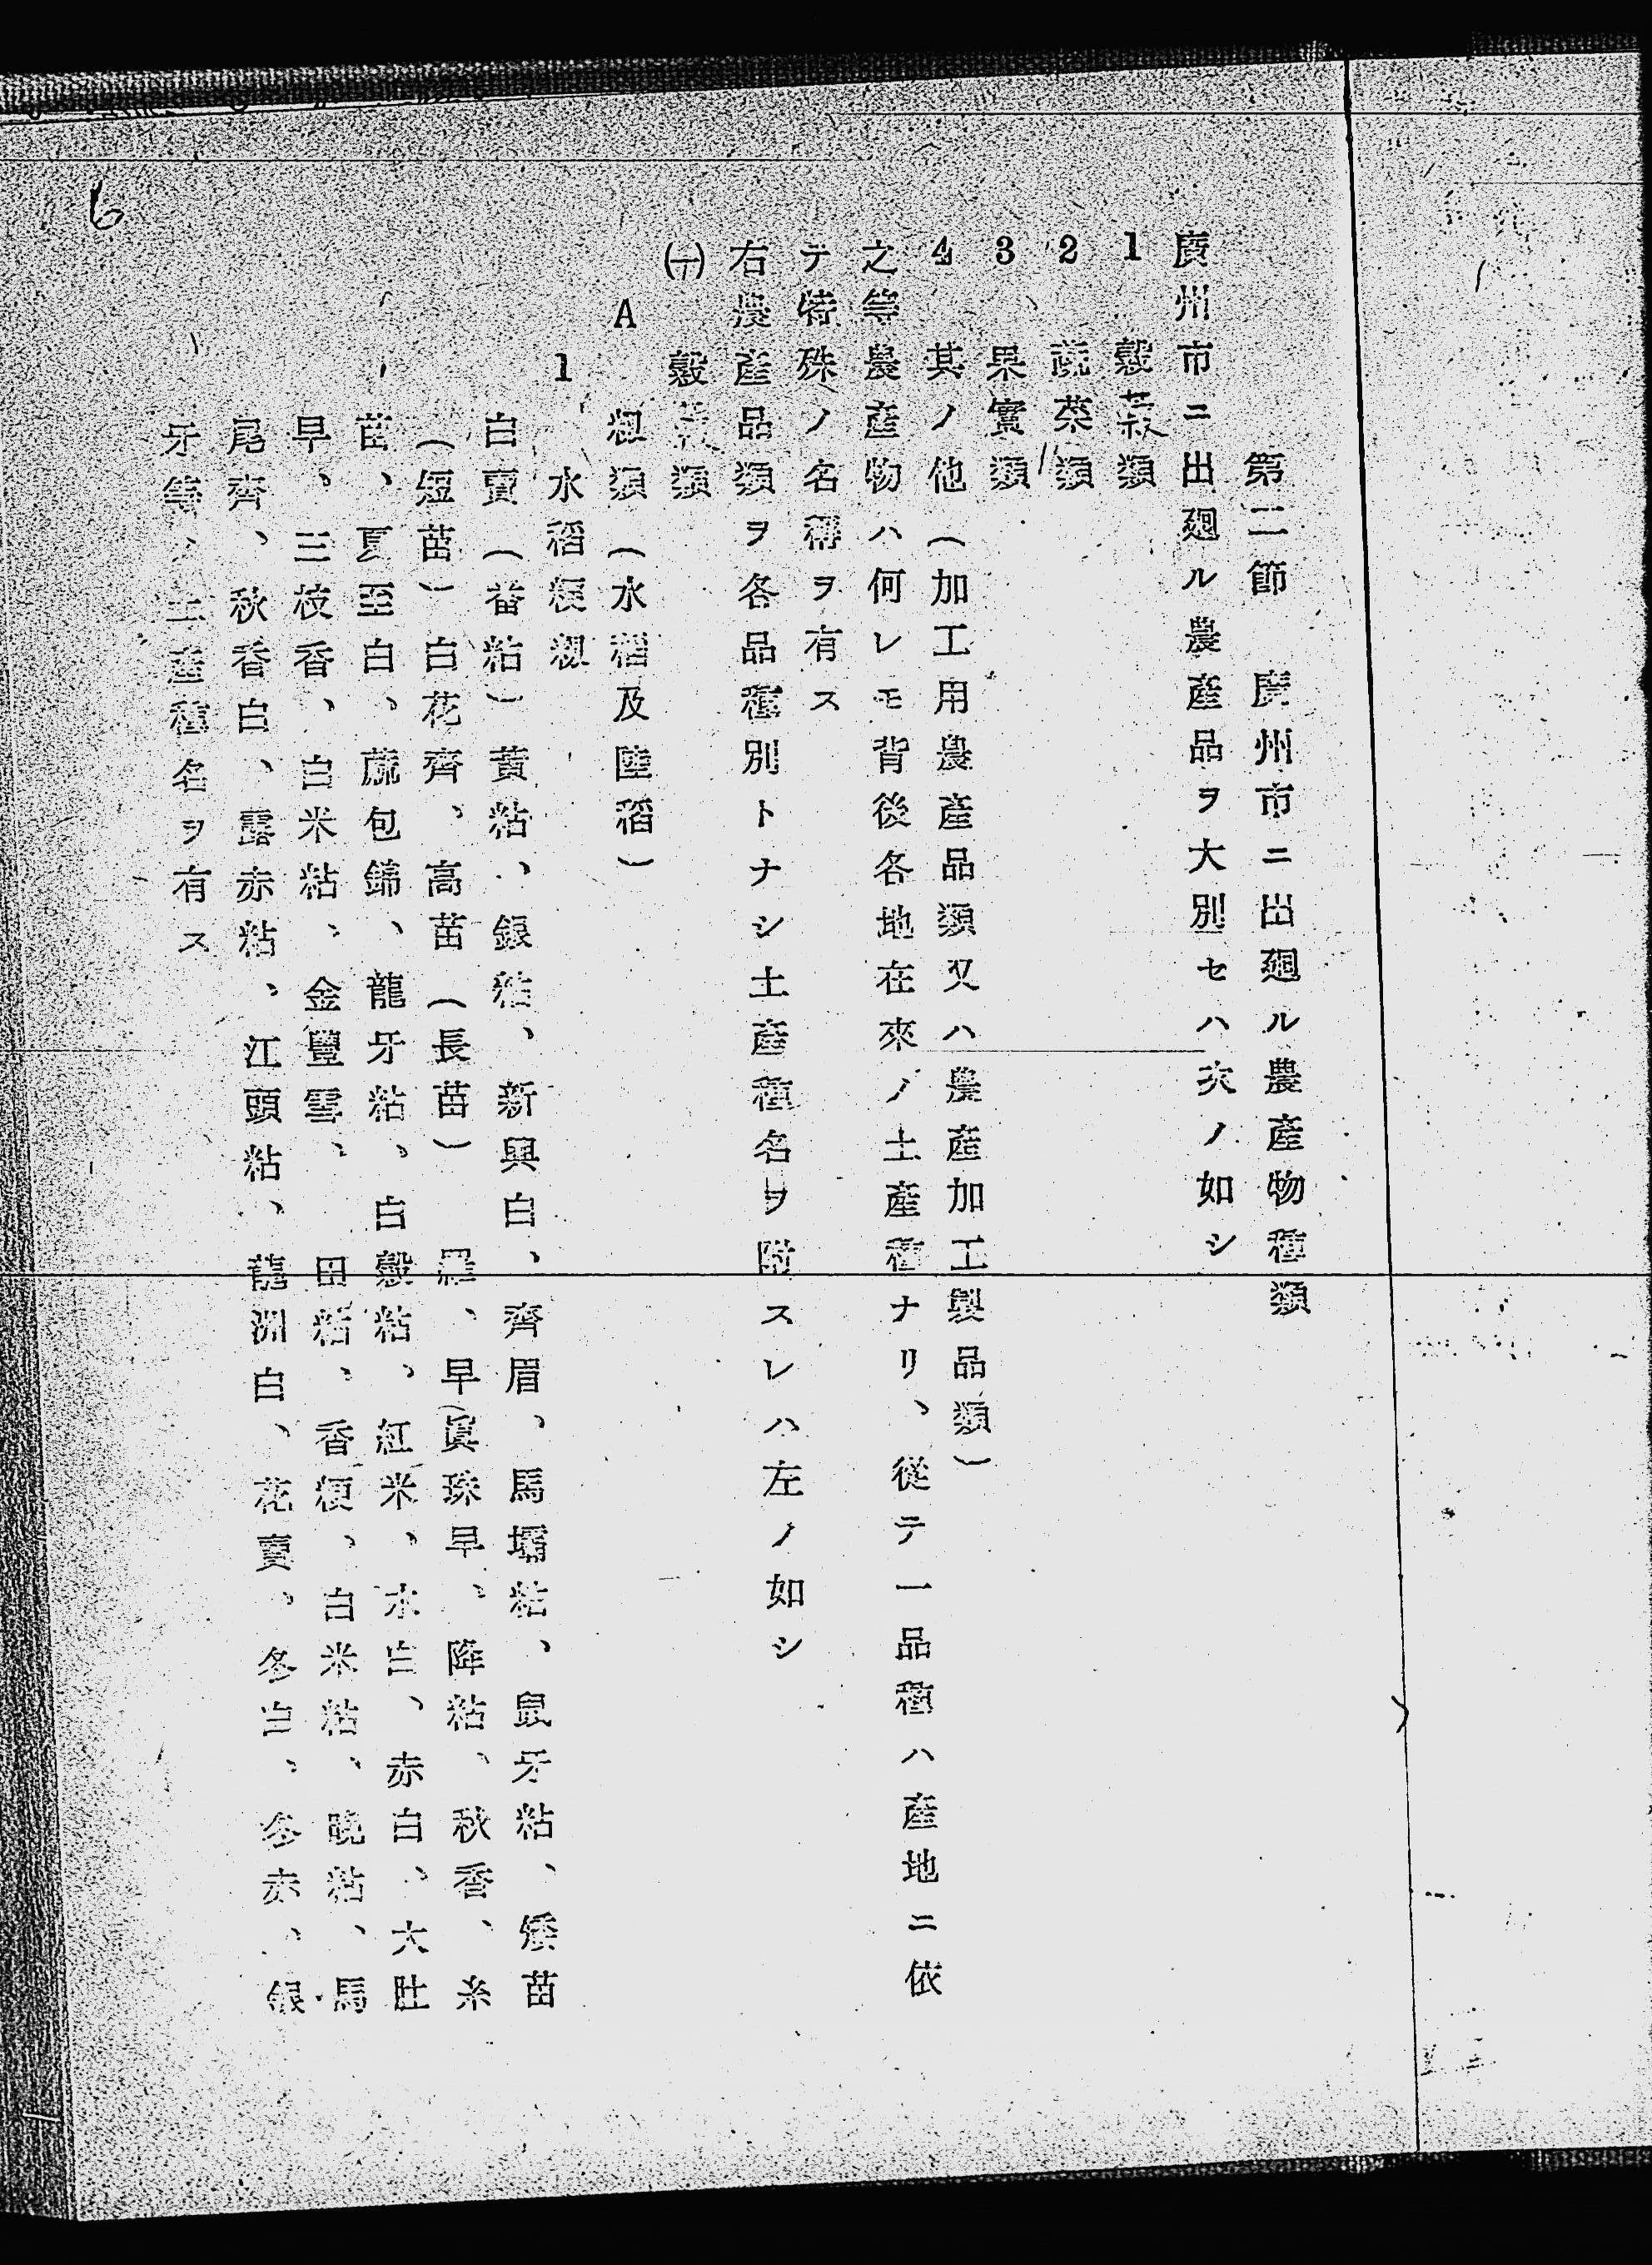 第二節　廣州市ニ出廻ル農產物種類
廣州市ニ出廻ル農產品ヲ大別セハ次ノ如シ
1　穀菽類
2　蔬菜類
3　果實類
4　其ノ他（加工用農產品類又ハ農產加工製品類）
之等農產物ハ何レモ背後各地在來ノ土產種ナリ、從テ一品種ハ產地ニ依
テ特殊ノ名稱ヲ有ス
右農產品類ヲ各品種別トナシ土產種名ヲ附スレハ左ノ如シ
㈠　穀菽類
A　籾類（水稻及陸稻）
1　水稻粳籾
白賣（蕃粘）黃粘、銀粘、新興白、齊眉、馬壩粘、鼠牙粘、矮苗
（短苗）白花齊、高苗（長苗）羅、早眞珠早、降粘、秋香、糸
苗、夏至白、蔴包錦、龍牙粘、白穀粘、紅米、水白、赤白、大肚
早、三枝香、白米粘、金豐雪、田粘、香粳、白米粘、晩粘、馬
尾齊、秋香白、露赤粘、江頭粘、龍洲白、花賣、冬白、冬赤、銀
牙等ノ土產種名ヲ有ス
6